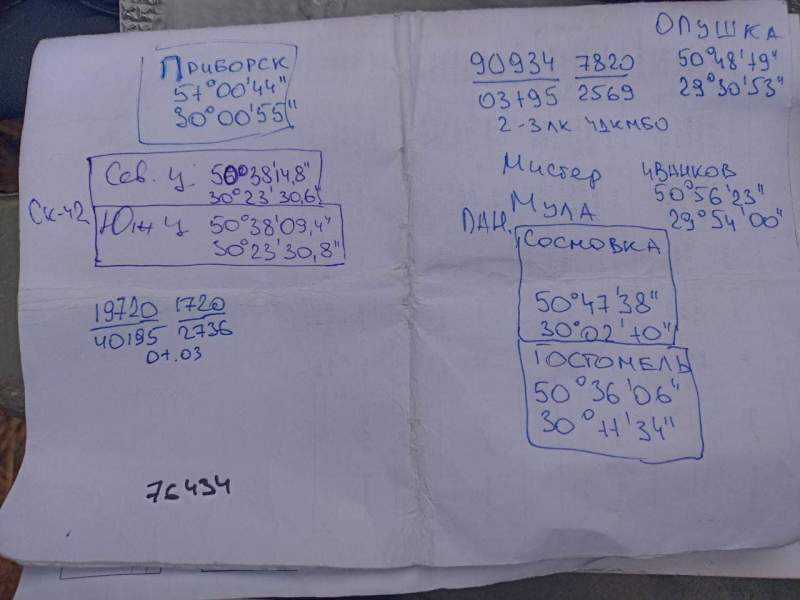 ПРИБОРСК
51°00'44"
30°00'55"
Сев. ц. 50°38'14,8"
30°23'30,6"
СК-42
Южн ц 50°38'09,4"
30°23'30,8"
19720 1720
40195 2736
01.03
76434
ОПУШКА
50°48'19"
29°30'53"
90934 7820
03195 2569
2-3ЛК ЧДКМБО
Мистер ИВАНКОВ
50°56'23"
29°54'00"
МУЛА
ПАН.
СОСНОВКА
50°47'38"
30°02'10"
ГОСТОМЕЛЬ
50°36'06"
30°11'34"